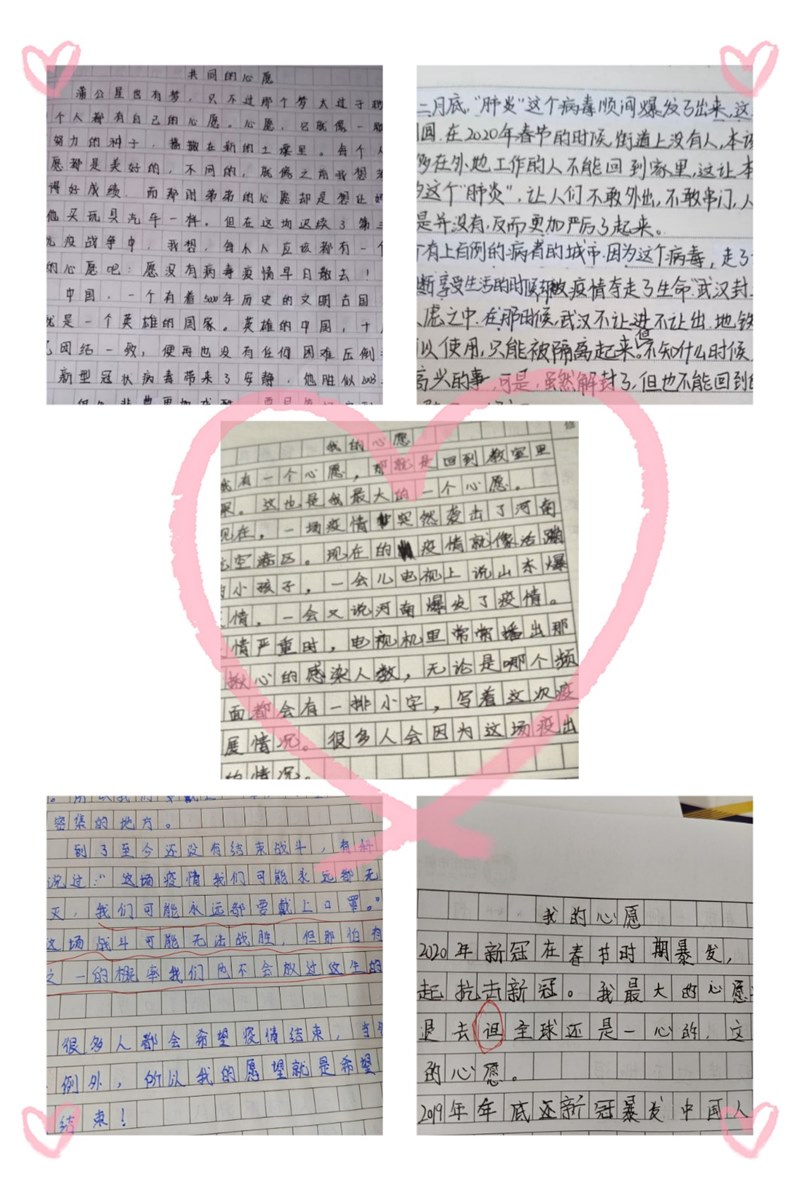 共同的心愿
蒲公英也有梦，只不过那个梦太过于
个人都有自己的心愿。心愿，它就像一
努力的种子，播撒在新的土壤里。每个
愿都是美好的，不同的，就像之前我想
得好成绩，而那时弟弟的心愿却是想让
他买玩具汽车一样。但在这场迟续了第
抗疫战争中，我想，每个人应该都有一个
的心愿吧：愿没有病毒疫情早日散去！
中国，一个有着5000年历史的文明古国
就是一个英雄的国家。英雄的中国，十
亿团结一致，便再也没有任何困难压倒
新型冠状病毒带来了安静，他胜似2003
二月底，“肺炎”这个病毒顺间爆发了出来，这
国，在2020年春节的时候，街道上没有人，本该
多在外地工作的人不能回到家里，这让本
为这个“肺炎”，让人们不敢外出，不敢串门，人
是并没有，反而更加严厉了起来。
有上百例的病者的城市，因为这个病毒，走了
断享受生活的时候却被疫情夺走了生命“武汉封
虑之中，在那时候，武汉不让进不让出，地铁
以使用，只能被隔离起来。不知什么时候
高兴的事，可是，虽然解封了，但也不能回到
我的心愿
我有一个心愿，那就是回到教室里
课。这也是我最大的一个心愿。
现在，一场疫情突然袭击了河南
现在的疫情就像活蹦
的小孩子，一会儿电视上说山东爆
情，一会又说河南爆发了疫情。
情严重时，电视机里常常播出那
揪心的感染人数，无论是哪个频
面都会有一排小字，写着这次疫
展情况。很多人会因为这场疫出
的情况。
密集的地方。
到了至今还没有结束战斗，有
说过：“这场疫情我们可能永远都无
天，我们可能永远都要戴上口罩。”
这场战斗可能无法战胜，但那怕有
之一的概率我们也不会放过这生的
很多人都会希望疫情结束，
例外，所以我的愿望就是希望
结束！
我的心愿
2020年新冠在春节时期暴发，
起抗击新冠。我最大的心愿
退去但全球还是一心的，这
的心愿。
2019年年底还新冠暴发中国人